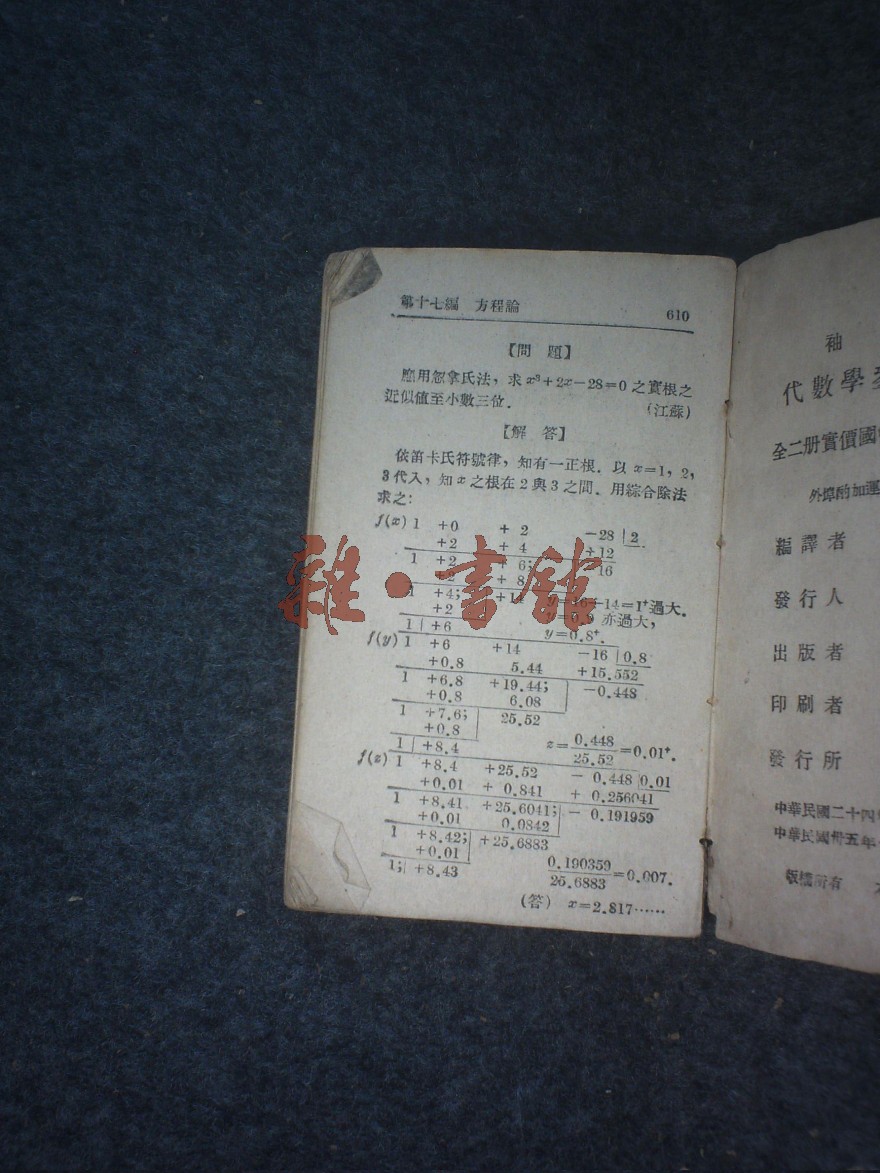 第十七編　方程論　610
【問　題】
應用忽拿氏法，求x³+2x−28=0之實根之
近似值至小數三位．　（江蘇）
【解　答】
依笛卡氏符號律，知有一正根．以 x=1，2，
3代入，知x之根在2與3之間．用綜合除法
求之：
f(x) 1 +0 + 2 −28 |2
+2 + 4 +12
1 +2 + 6; 16
+2 + 8
1 +4; +14 y=16÷14=1⁺過大．
+2 y=0.9 亦過大，
1 | +6 y=0.8⁺．
f(y) 1 +6 +14 −16 |0.8
+0.8 5.44 +15.552
1 +6.8 +19.44; −0.448
+0.8 6.08
1 +7.6; 25.52
+0.8
1 | +8.4 z=0.448/25.52=0.01⁺．
f(z) 1 +8.4 +25.52 − 0.448 |0.01
+0.01 + 0.841 + 0.256041
1 +8.41 +25.6041; − 0.191959
+0.01 0.0842
1 +8.42; +25.6883
+0.01
1; | +8.43 0.190359/25.6883=0.007．
(答) x=2.817……
雜·書館
袖
代數學
全二册實價國
外埠酌加運
編譯者
發行人
出版者
印刷者
發行所
中華民國二十四
中華民國卅五年
版權所有